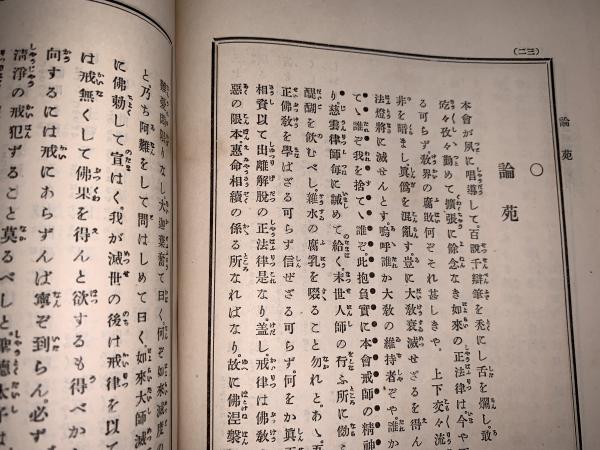 (二三)
論苑
○
論苑
本會が夙に唱導して、百說千辯筆を禿にし舌を爛し、敢
矻々孜々勤めて、擴張に餘念なき如來の正法律は今や
る可らず敎界の腐敗何ぞそれ甚しきや。上下交々流
非を暗まし眞僞を混亂す豈に大敎衰滅せざるを得ん
法燈將に滅せんとす。嗚呼誰か大敎の維持者ぞや。誰か
て、誰ぞ我を捨て、誰ぞ此抱負實に本會戒師の精神
り慈雲律師每に誡めて給く末世人師の行ふ所に傚
醍醐を飮むべし、雜水の腐乳を啜ること勿れと。あゝ吾
正佛敎を學ばざる可らず信ぜざる可らず。何をか眞正
相資以て出離解脫の正法律是なり。盖し戒律は佛敎の
惡の限本惠命相續の係る所なればなり。故に佛涅槃
限りなし、大迦葉奮て曰く、何ぞ如來滅度の
と乃ち阿難をして問はしめて曰く、如來大師滅
に佛勅して宣はく、我が滅世の後は戒律を以て
は戒無くして佛果を得んと欲するも得べか
向するには戒にあらずんば寧ぞ到らん。必ず
淸淨の戒犯ずること莫るべしと。聖德太子は